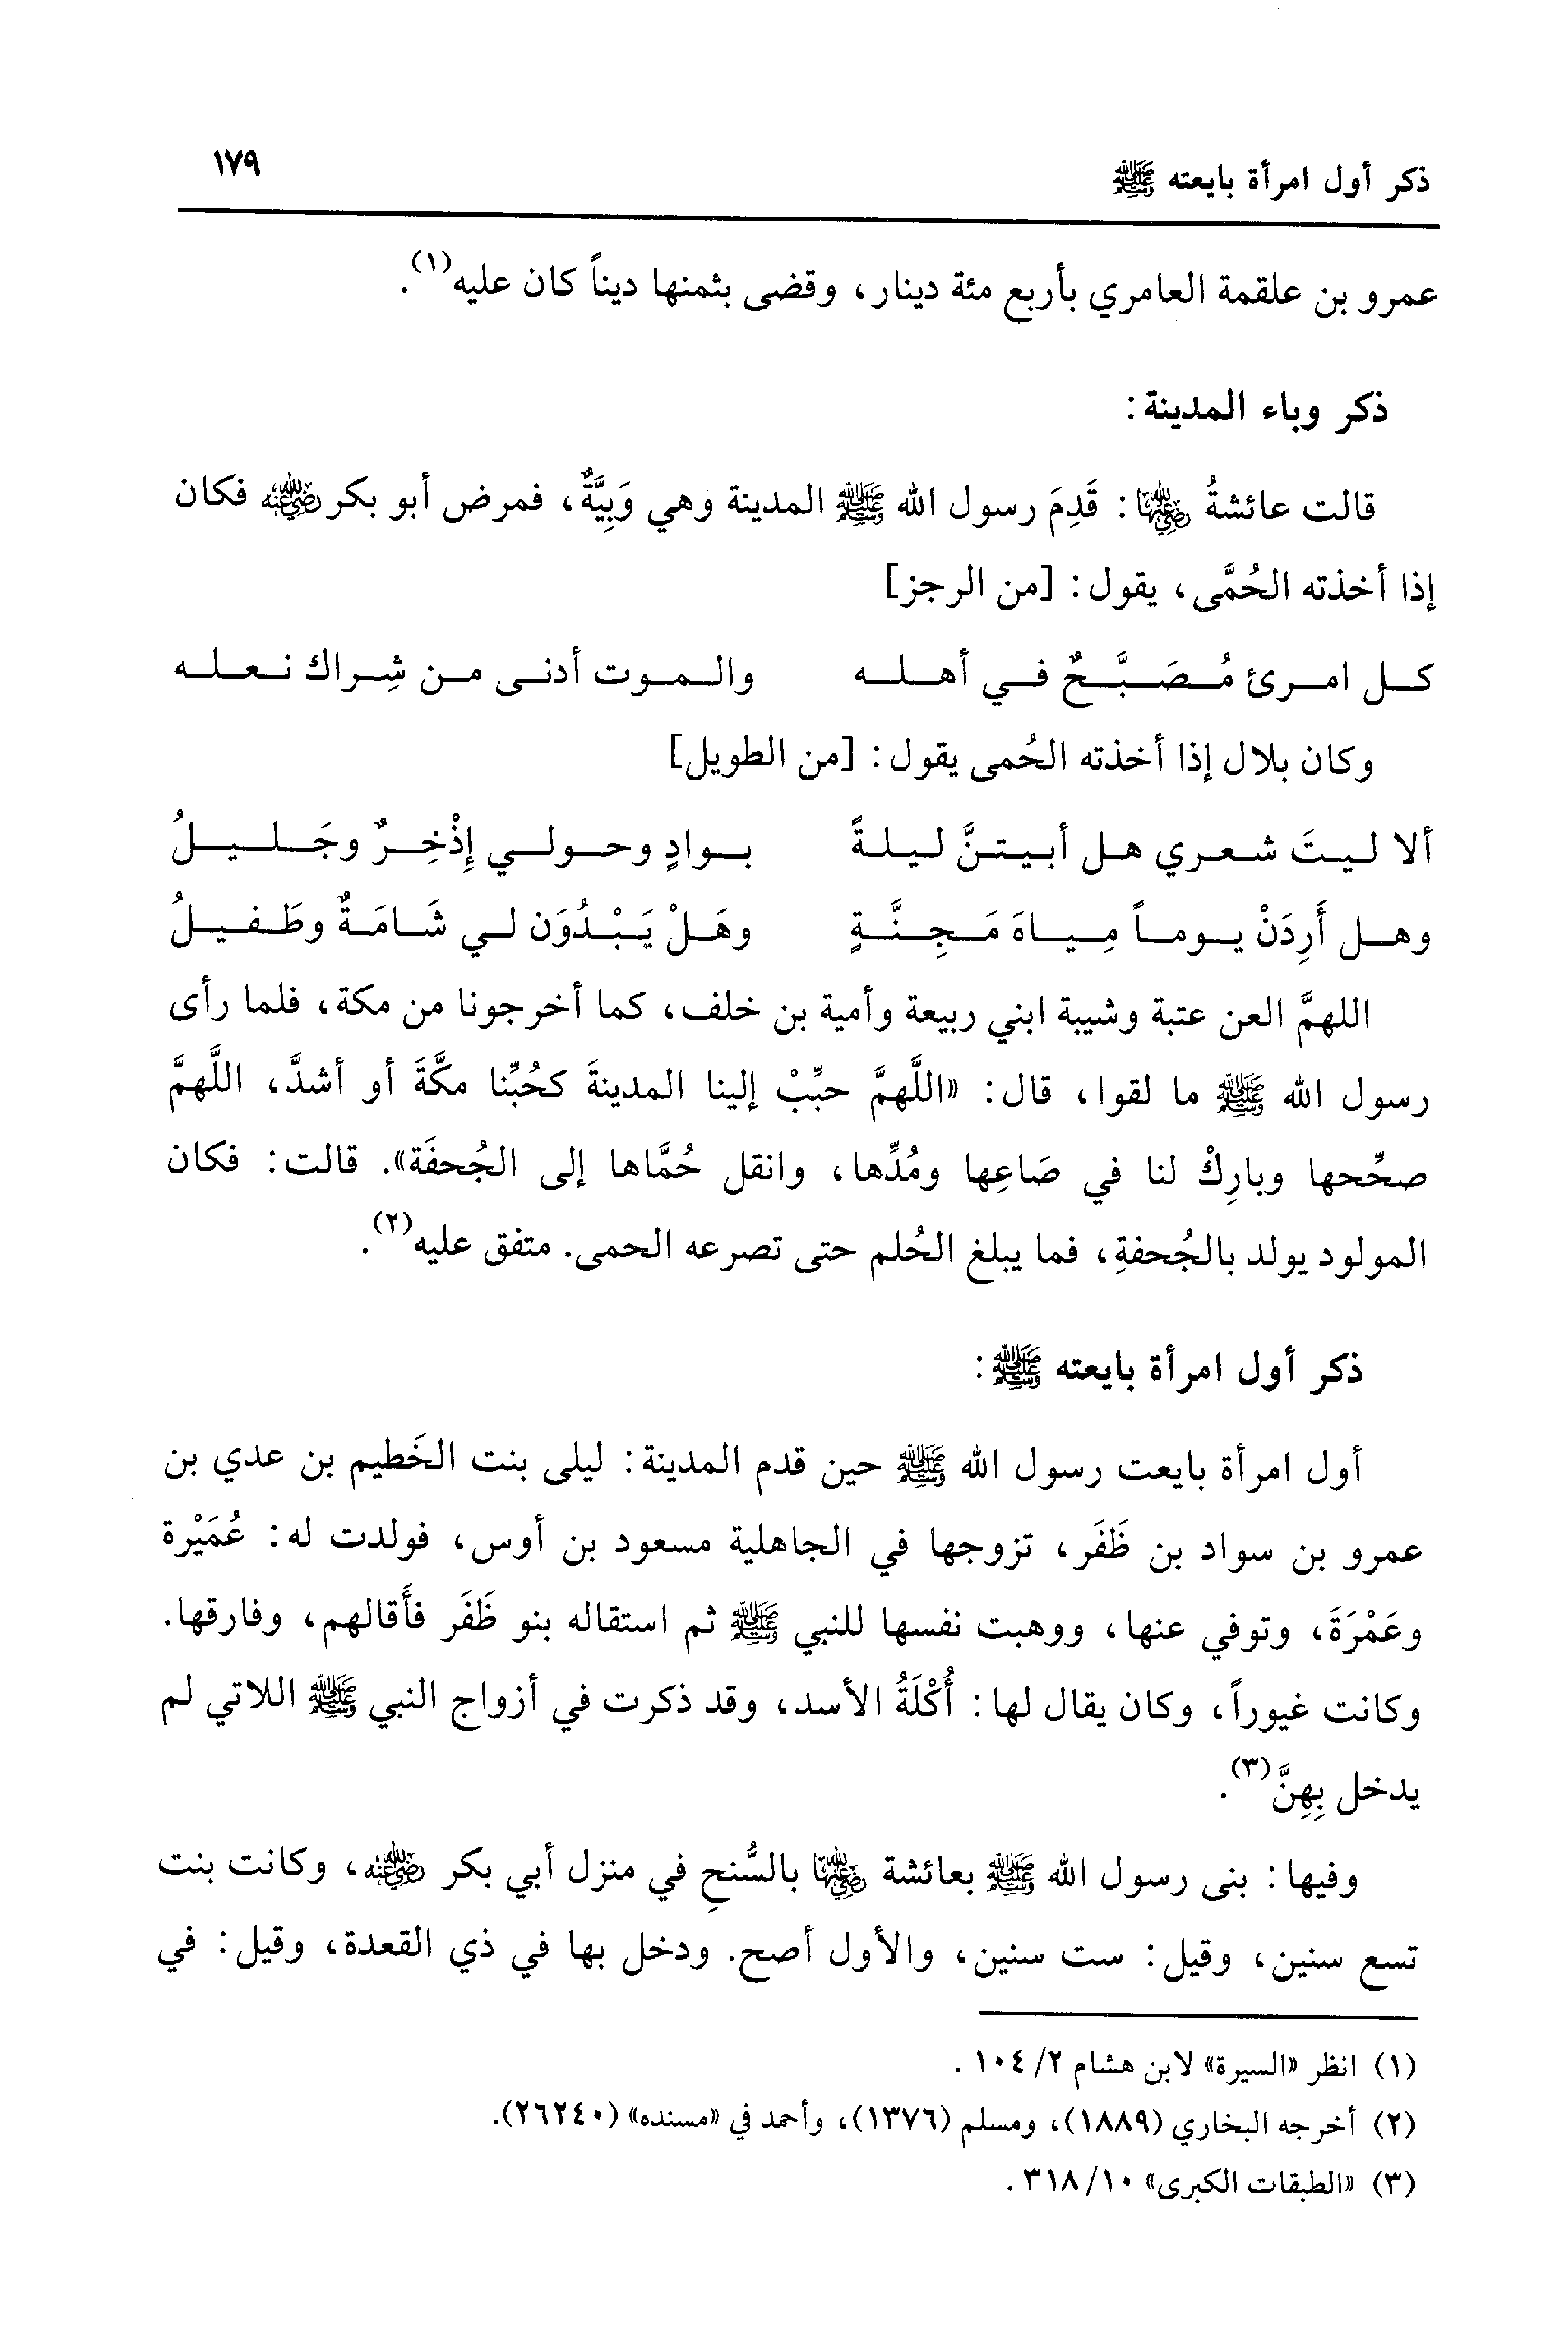 ذكر أول امرأة بايعته ﷺ ١٧٩
عمرو بن علقمة العامري بأربع مئة دينار، وقضى بثمنها ديناً كان عليه(١).
ذكر وباء المدينة:
قالت عائشةُ رضي الله عنها: قَدِمَ رسول الله ﷺ المدينة وهي وَبِيَّةٌ، فمرض أبو بكر رضي الله عنه فكان
إذا أخذته الحُمَّى، يقول: [من الرجز]
كل امرئ مُصَبَّحٌ في أهله والموت أدنى من شِراك نعله
وكان بلال إذا أخذته الحُمى يقول: [من الطويل]
ألا ليتَ شعري هل أبيتنَّ ليلةً بوادٍ وحولي إِذْخِرٌ وجَليلُ
وهل أَرِدَنْ يوماً مِياهَ مَجِنَّةٍ وهَلْ يَبْدُوَن لي شَامَةٌ وطَفيلُ
اللهمَّ العن عتبة وشيبة ابني ربيعة وأمية بن خلف، كما أخرجونا من مكة، فلما رأى
رسول الله ﷺ ما لقوا، قال: «اللَّهمَّ حبِّبْ إلينا المدينةَ كحُبِّنا مكَّةَ أو أشدَّ، اللَّهمَّ
صحِّحها وبارِكْ لنا في صَاعِها ومُدِّها، وانقل حُمَّاها إلى الجُحفَة». قالت: فكان
المولود يولد بالجُحفةِ، فما يبلغ الحُلم حتى تصرعه الحمى. متفق عليه(٢).
ذكر أول امرأة بايعته ﷺ:
أول امرأة بايعت رسول الله ﷺ حين قدم المدينة: ليلى بنت الخَطيم بن عدي بن
عمرو بن سواد بن ظَفَر، تزوجها في الجاهلية مسعود بن أوس، فولدت له: عُمَيْرة
وعَمْرَةَ، وتوفي عنها، ووهبت نفسها للنبي ﷺ ثم استقاله بنو ظَفَر فأَقالهم، وفارقها.
وكانت غيوراً، وكان يقال لها: أُكْلَةُ الأسد، وقد ذكرت في أزواج النبي ﷺ اللاتي لم
يدخل بِهِنَّ(٣).
وفيها: بنى رسول الله ﷺ بعائشة رضي الله عنها بالسُّنحِ في منزل أبي بكر رضي الله عنه، وكانت بنت
تسع سنين، وقيل: ست سنين، والأول أصح. ودخل بها في ذي القعدة، وقيل: في
(١) انظر «السيرة» لابن هشام ٢/ ١٠٤.
(٢) أخرجه البخاري (١٨٨٩)، ومسلم (١٣٧٦)، وأحمد في «مسنده» (٢٦٢٤٠).
(٣) «الطبقات الكبرى» ١٠/ ٣١٨.